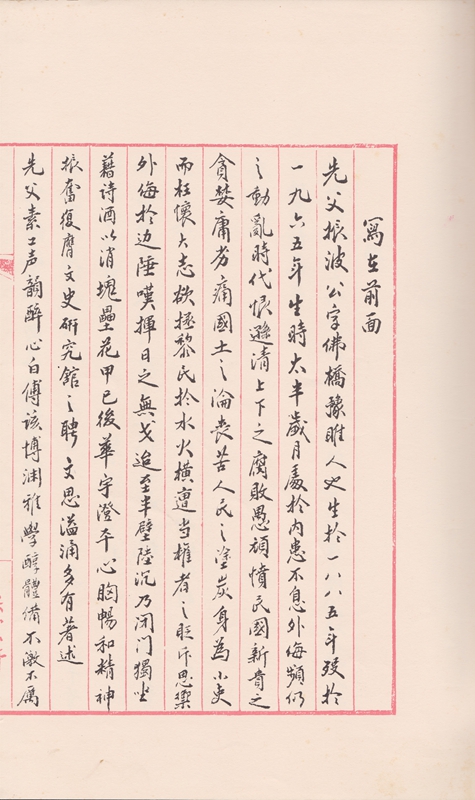 寫在前面
先父振波公字佛橋豫睢人也生於一八八五年殁於
一九六五年生時太半歲月處於内患不息外侮頻仍
之動亂時代恨遜清上下之腐敗愚頑憤民國新貴之
貪婪庸劣痛國土之淪喪苦人民之塗炭身為小吏
而枉懷大志欲拯黎民於水火橫遭当權者之貶斥思禦
外侮於边陲嘆揮日之無戈迨至半壁陸沉乃闭门獨坐
藉詩酒以消塊壘花甲已後華宇澄平心胸暢和精神
振奮復膺文史研究館之聘文思溢涌多有著述
先父素工声韻醉心白傅该博渊雅學醇體備不激不厲